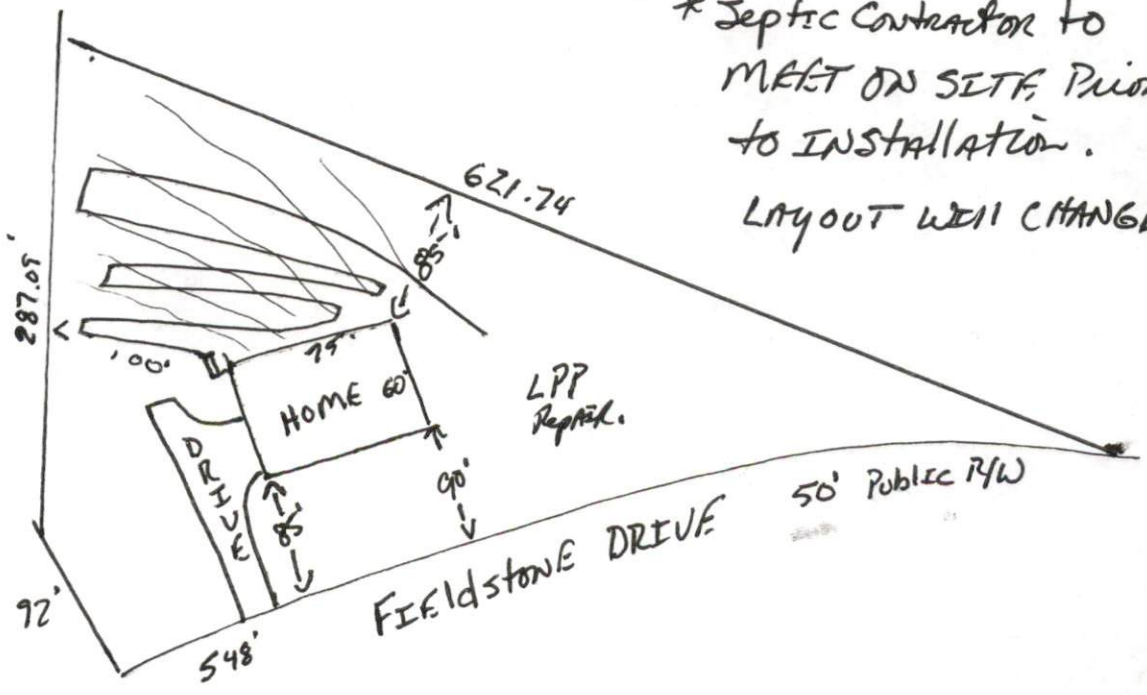 * Septic Contractor to
MEET ON SITE, Prior
to INSTALLATION.
LAYOUT WILL CHANGE
621.74
85'
287.05'
75'
HOME 60'
LPP
REPAIR.
DRIVE
90'
85'
50' Public R/W
FIELDSTONE DRIVE
92'
548'